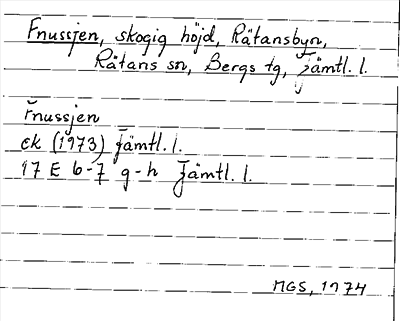 Fnussjen, skogig höjd, Rätansbyn,
Rätans sn, Bergs tg, Jämtl. l.
Fnussjen
ek (1973) Jämtl. l.
17 E 6-7 g-h Jämtl. l.
MGS, 1974